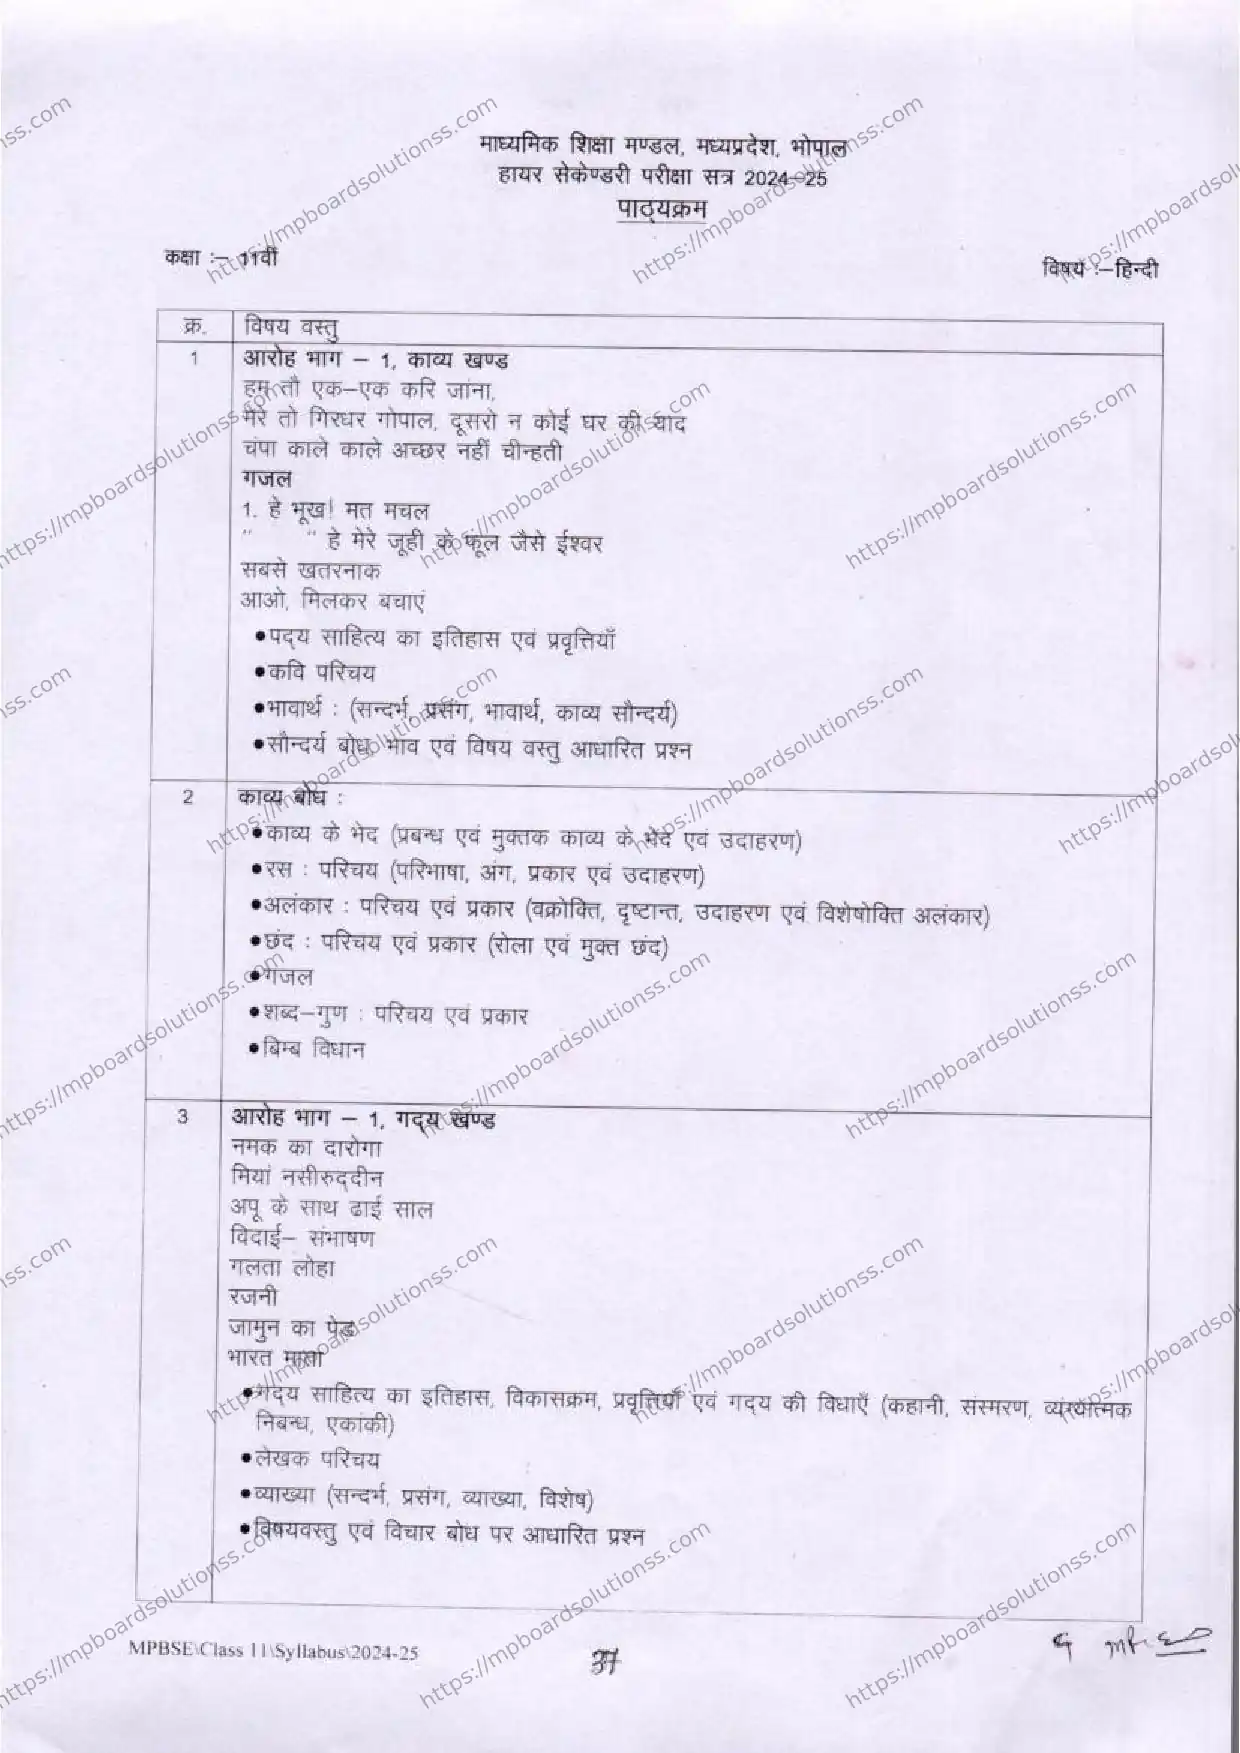 माध्यमिक शिक्षा मण्डल, मध्यप्रदेश, भोपाल
हायर सेकेण्डरी परीक्षा सत्र 2024-25
पाठ्यक्रम
कक्षा :- 11वीं
विषय :-हिन्दी
क्र. विषय वस्तु
1 आरोह भाग - 1, काव्य खण्ड
हम तौ एक-एक करि जांना,
मेरे तो गिरधर गोपाल, दूसरो न कोई घर की याद
चंपा काले काले अच्छर नहीं चीन्हती
गजल
1. हे भूख! मत मचल
" " हे मेरे जूही के फूल जैसे ईश्वर
सबसे खतरनाक
आओ, मिलकर बचाएं
●पद्य साहित्य का इतिहास एवं प्रवृत्तियाँ
●कवि परिचय
●भावार्थ : (सन्दर्भ, प्रसंग, भावार्थ, काव्य सौन्दर्य)
●सौन्दर्य बोध, भाव एवं विषय वस्तु आधारित प्रश्न
2 काव्य बोध :
●काव्य के भेद (प्रबन्ध एवं मुक्तक काव्य के भेद एवं उदाहरण)
●रस : परिचय (परिभाषा, अंग, प्रकार एवं उदाहरण)
●अलंकार : परिचय एवं प्रकार (वक्रोक्ति, दृष्टान्त, उदाहरण एवं विशेषोक्ति अलंकार)
●छंद : परिचय एवं प्रकार (रोला एवं मुक्त छंद)
●गजल
●शब्द-गुण : परिचय एवं प्रकार
●बिम्ब विधान
3 आरोह भाग - 1, गद्य खण्ड
नमक का दारोगा
मियां नसीरुद्दीन
अपू के साथ ढाई साल
विदाई- संभाषण
गलता लोहा
रजनी
जामुन का पेड़
भारत माता
●गद्य साहित्य का इतिहास, विकासक्रम, प्रवृत्तियाँ एवं गद्य की विधाएँ (कहानी, संस्मरण, व्यंग्यात्मक
निबन्ध, एकांकी)
●लेखक परिचय
●व्याख्या (सन्दर्भ, प्रसंग, व्याख्या, विशेष)
●विषयवस्तु एवं विचार बोध पर आधारित प्रश्न
MPBSE\Class 11\Syllabus\2024-25
37
https://mpboardsolutionss.com